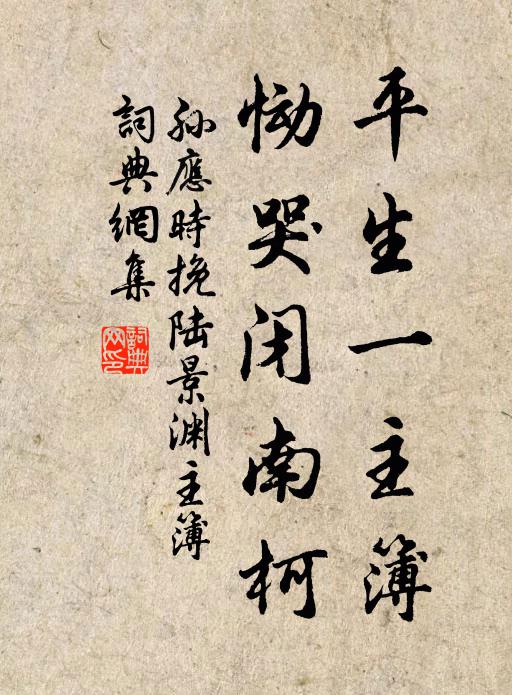 平生一主簿
恸哭闭南柯
孙應時挽陆景渊主簿
詞典網集
詞典网印